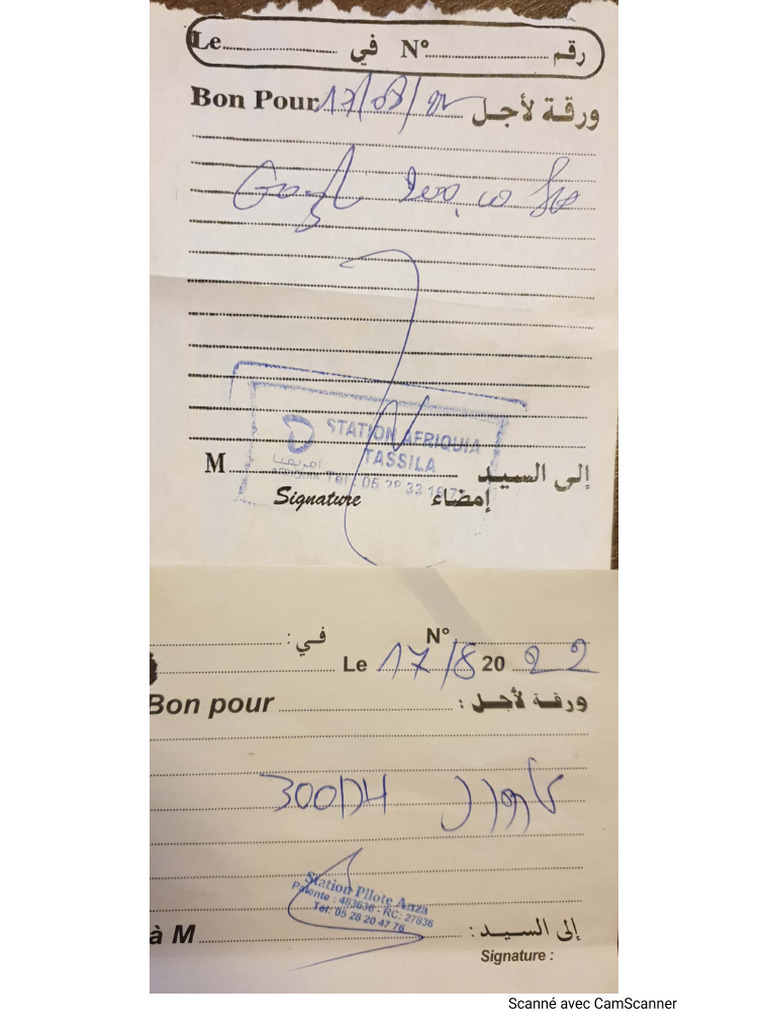 Le.................... في N°.................... رقم
Bon Pour 17/08/22 ورقة لأجل
STATION AFRIQUIA
TASSILA
M.................... إلى السيد
افريقيا
AFRIQUIA Tel : 05 28 33 16 7
Signature إمضاء
N° .................... في :
Le 17/8 20 22
Bon pour .................... ورقة لأجل :
300DH
Station Pilote Anza
Patente : 483636 - RC: 27836
Tél: 05 28 20 47 76
à M .................... إلى السيد :
Signature :
Scanné avec CamScanner